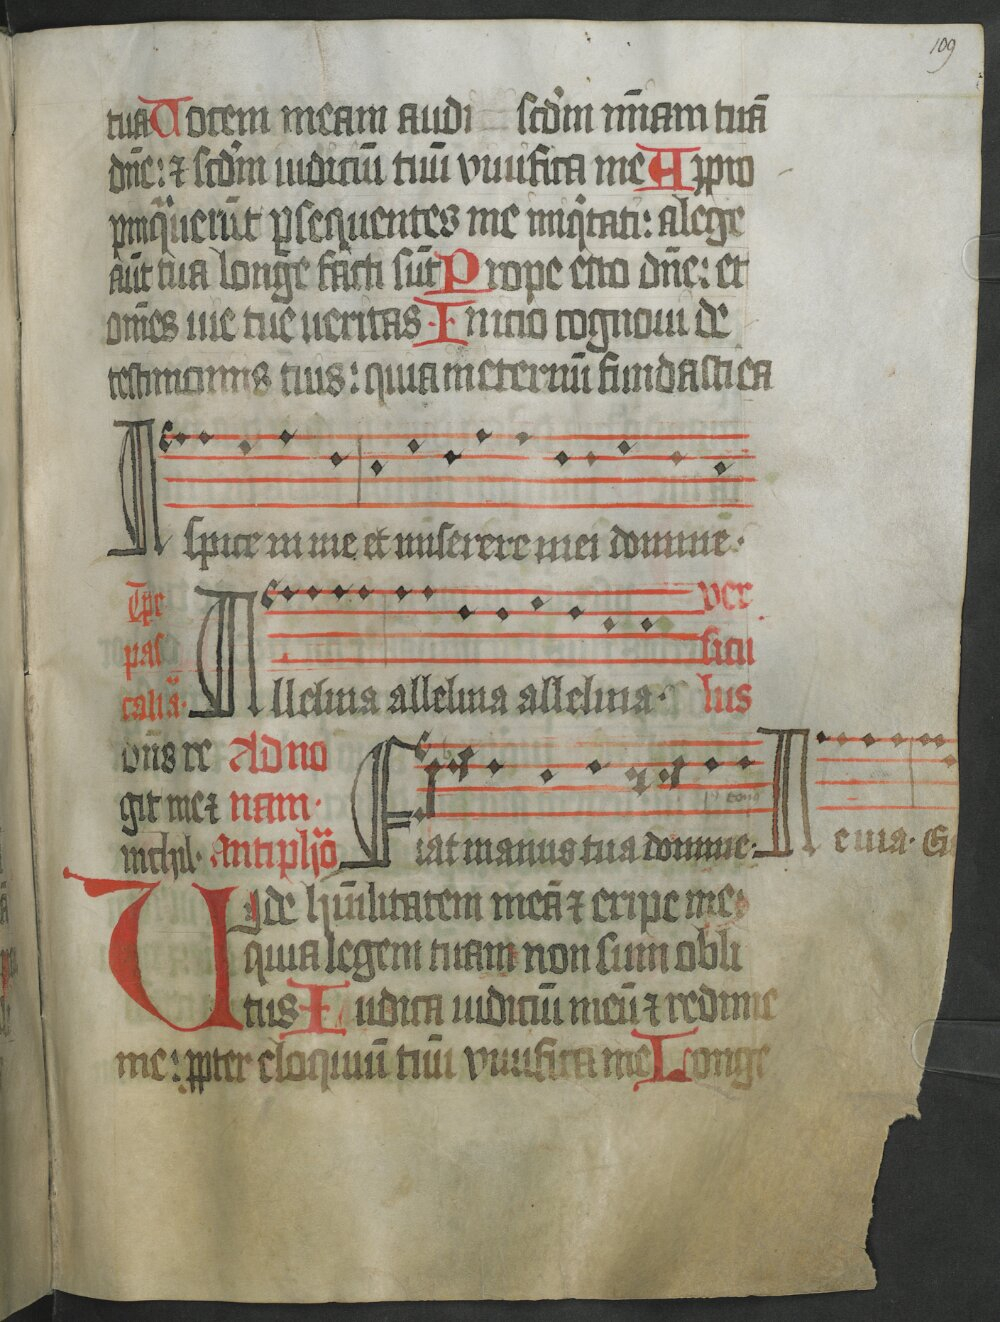 109
tua Vocem meam audi scđm mīam tuā
dn̄e: ⁊ scđm iudiciū tuū viuifica me Appro
pinq̄uerūt ꝑsequentes me iniq̄tati: a lege
aūt tua longe facti sūt Prope es tu dn̄e: et
om̄es uie tue ueritas Inicio cognoui de
testimoniis tuis: quia in eternū fundasti ea
Aspice in me et miserere mei domine.
Tꝑe
pas
caliā.
Alleluia alleluia alleluia.
ver
sicu
lus
dn̄s re Ad no
git me ⁊ nam.
nichil. Antiphō
Fiat manus tua domine.
A euia.
Vide hūilitatem meā ⁊ eripe me:
quia legem tuam non sum obli
tus Iudica iudiciū meū ⁊ redime
me: ꝓpter eloquiū tuū viuifica me Longe